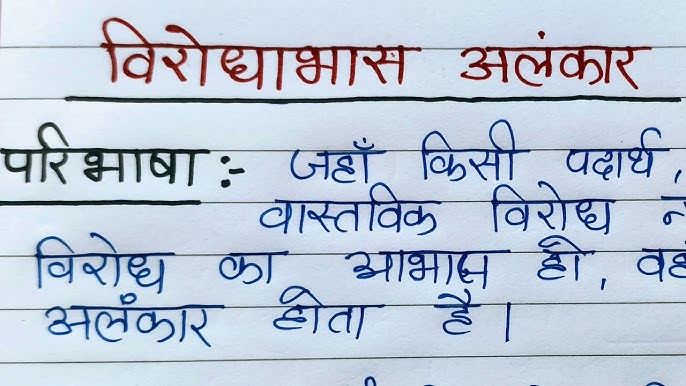 विरोधाभास अलंकार
परिभाषा :- जहाँ किसी पदार्थ,
वास्तविक विरोध
विरोध का आभास हो, वहाँ
अलंकार होता है।